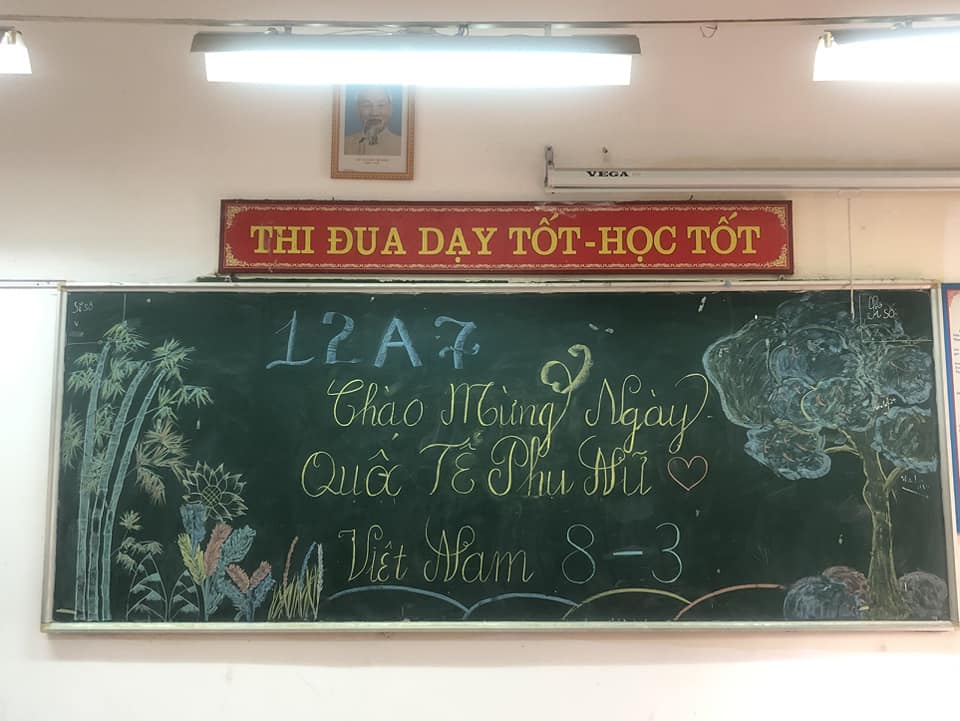 VEGA
THI ĐUA DẠY TỐT-HỌC TỐT
Sĩ số
12A7
Chào Mừng Ngày
Quốc Tế Phụ Nữ
Việt Nam 8-3